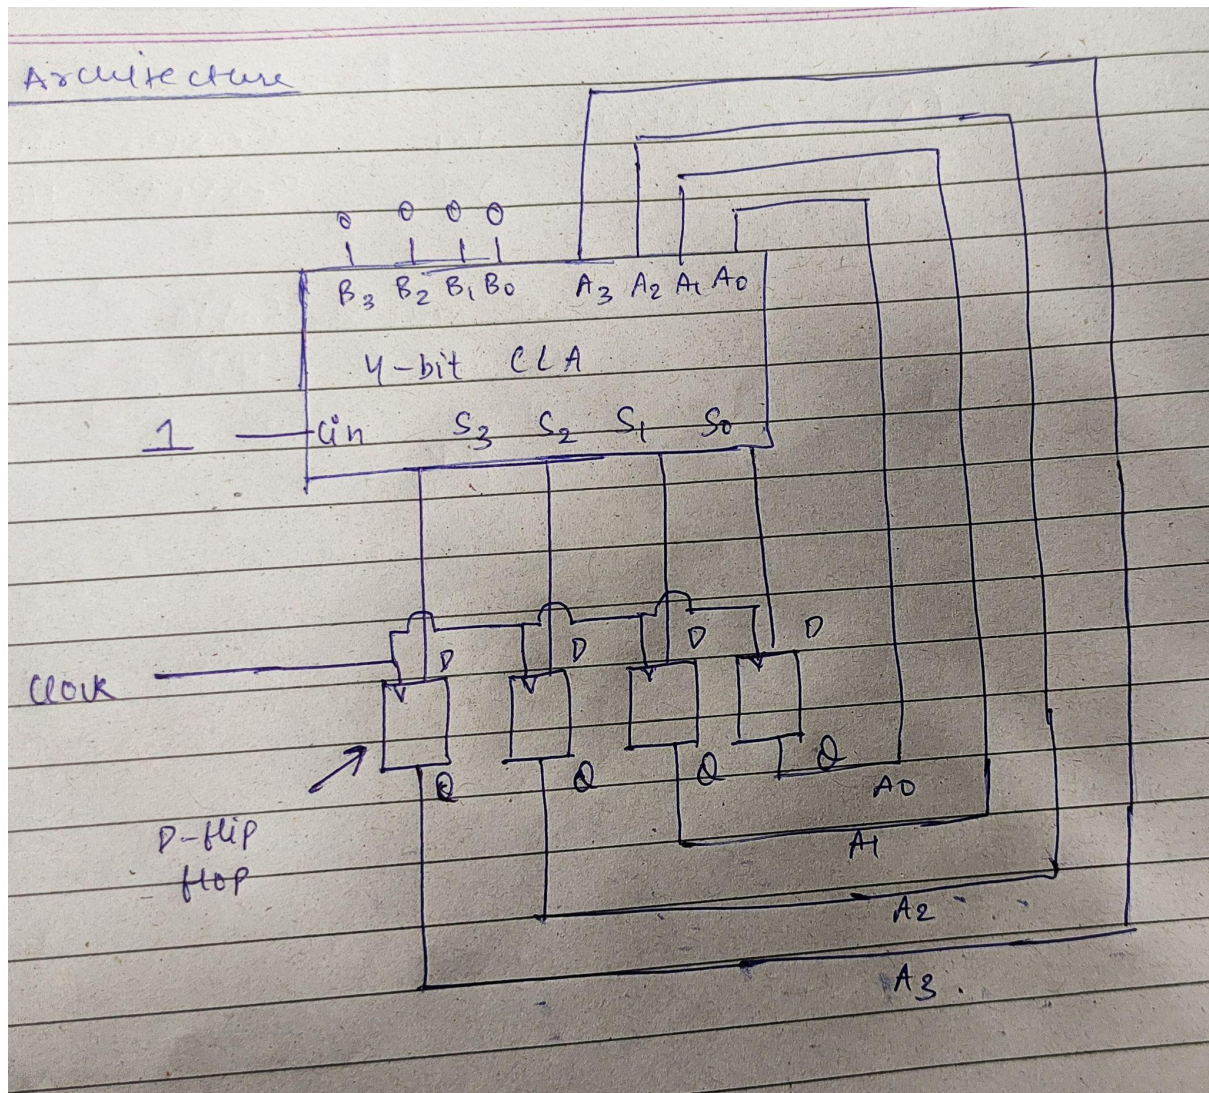 Architecture
0 0 0 0
B3 B2 B1 B0 A3 A2 A1 A0
4-bit CLA
1 Cin S3 S2 S1 S0
D D D D
Clock
Q Q Q Q
A0
D-flip
flop
A1
A2
A3.